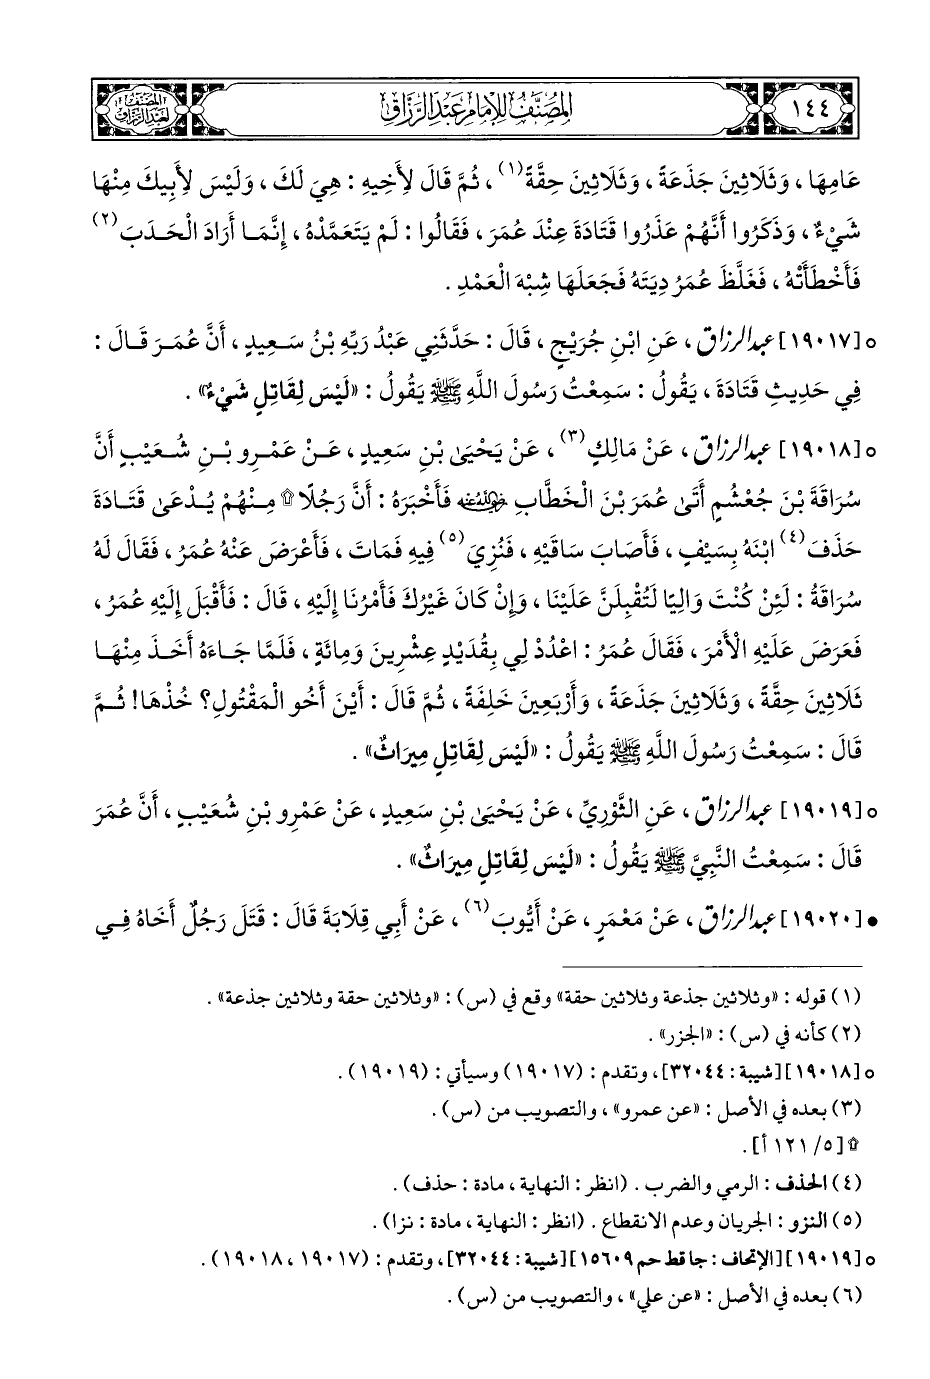 ١٤٤
المصنف للإمام عبد الرزاق
المصنف لعبد الرزاق
عَامِهَا ، وَثَلَاثِينَ جَذَعَةً ، وَثَلَاثِينَ حِقَّةً (١) ، ثُمَّ قَالَ لِأَخِيهِ : هِيَ لَكَ ، وَلَيْسَ لِأَبِيكَ مِنْهَا
شَيْءٌ ، وَذَكَرُوا أَنَّهُمْ عَذَرُوا قَتَادَةَ عِنْدَ عُمَرَ ، فَقَالُوا : لَمْ يَتَعَمَّدْهُ ، إِنَّمَا أَرَادَ الْحَدَبَ (٢)
فَأَخْطَأَتْهُ ، فَغَلَّظَ عُمَرُ دِيَتَهُ فَجَعَلَهَا شِبْهَ الْعَمْدِ .
○ [١٩٠١٧] عبد الرزاق ، عَنِ ابْنِ جُرَيْجٍ ، قَالَ : حَدَّثَنِي عَبْدُ رَبِّهِ بْنُ سَعِيدٍ ، أَنَّ عُمَرَ قَالَ :
فِي حَدِيثِ قَتَادَةَ ، يَقُولُ : سَمِعْتُ رَسُولَ اللَّهِ ﷺ يَقُولُ : «لَيْسَ لِقَاتِلٍ شَيْءٌ» .
○ [١٩٠١٨] عبد الرزاق ، عَنْ مَالِكٍ (٣) ، عَنْ يَحْيَىٰ بْنِ سَعِيدٍ ، عَنْ عَمْرِو بْنِ شُعَيْبٍ أَنَّ
سُرَاقَةَ بْنَ جُعْشُمٍ أَتَىٰ عُمَرَ بْنَ الْخَطَّابِ رضي الله عنه فَأَخْبَرَهُ : أَنَّ رَجُلًا ۩ مِنْهُمْ يُدْعَىٰ قَتَادَةَ
حَذَفَ (٤) ابْنَهُ بِسَيْفٍ ، فَأَصَابَ سَاقَيْهِ ، فَنُزِيَ (٥) فِيهِ فَمَاتَ ، فَأَعْرَضَ عَنْهُ عُمَرُ ، فَقَالَ لَهُ
سُرَاقَةُ : لَئِنْ كُنْتَ وَالِيًا لَتُقْبِلَنَّ عَلَيْنَا ، وَإِنْ كَانَ غَيْرُكَ فَأَمْرُنَا إِلَيْهِ ، قَالَ : فَأَقْبَلَ إِلَيْهِ عُمَرُ ،
فَعَرَضَ عَلَيْهِ الْأَمْرَ ، فَقَالَ عُمَرُ : اعْدُدْ لِي بِقُدَيْدٍ عِشْرِينَ وَمِائَةٍ ، فَلَمَّا جَاءَهُ أَخَذَ مِنْهَا
ثَلَاثِينَ حِقَّةً ، وَثَلَاثِينَ جَذَعَةً ، وَأَرْبَعِينَ خَلِفَةً ، ثُمَّ قَالَ : أَيْنَ أَخُو الْمَقْتُولِ؟ خُذْهَا! ثُمَّ
قَالَ : سَمِعْتُ رَسُولَ اللَّهِ ﷺ يَقُولُ : «لَيْسَ لِقَاتِلٍ مِيرَاثٌ» .
○ [١٩٠١٩] عبد الرزاق ، عَنِ الثَّوْرِيِّ ، عَنْ يَحْيَىٰ بْنِ سَعِيدٍ ، عَنْ عَمْرِو بْنِ شُعَيْبٍ ، أَنَّ عُمَرَ
قَالَ : سَمِعْتُ النَّبِيَّ ﷺ يَقُولُ : «لَيْسَ لِقَاتِلٍ مِيرَاثٌ» .
● [١٩٠٢٠] عبد الرزاق ، عَنْ مَعْمَرٍ ، عَنْ أَيُّوبَ (٦) ، عَنْ أَبِي قِلَابَةَ قَالَ : قَتَلَ رَجُلٌ أَخَاهُ فِي
(١) قوله : «وثلاثين جذعة وثلاثين حقة» وقع في (س) : «وثلاثين حقة وثلاثين جذعة» .
(٢) كأنه في (س) : «الجزر» .
○ [١٩٠١٨] [شيبة : ٣٢٠٤٤] ، وتقدم : (١٩٠١٧) وسيأتي : (١٩٠١٩) .
(٣) بعده في الأصل : «عن عمرو» ، والتصويب من (س) .
۩ [٥/ ١٢١ أ] .
(٤) الحذف : الرمي والضرب . (انظر : النهاية ، مادة : حذف) .
(٥) النزو : الجريان وعدم الانقطاع . (انظر : النهاية ، مادة : نزا) .
○ [١٩٠١٩] [الإتحاف : جا قط حم ١٥٦٠٩] [شيبة : ٣٢٠٤٤] ، وتقدم : (١٩٠١٧ ، ١٩٠١٨) .
(٦) بعده في الأصل : «عن علي» ، والتصويب من (س) .